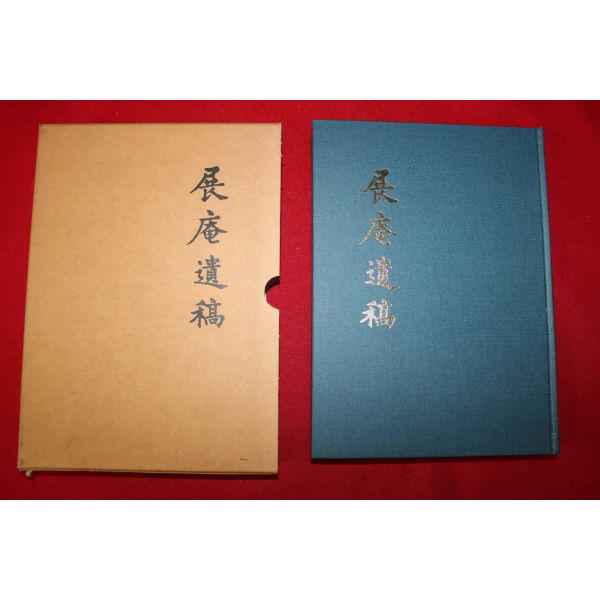 展庵遺稿
展庵遺稿